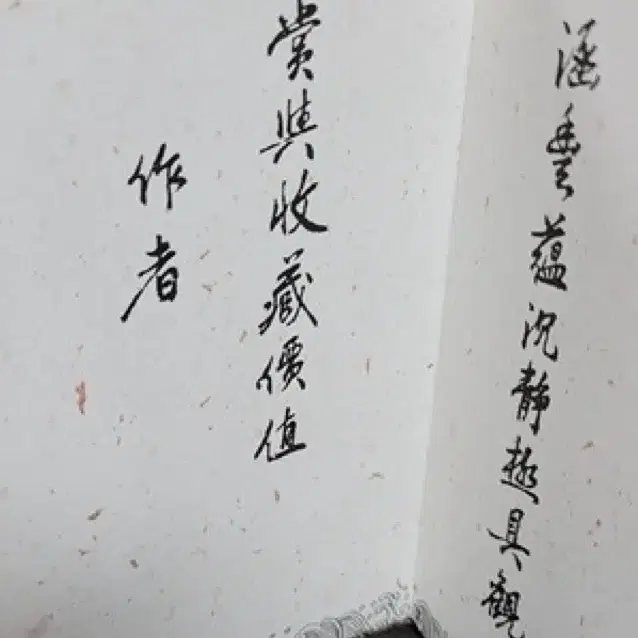 涵豐蘊沉靜極具觀
賞與收藏價值
作者